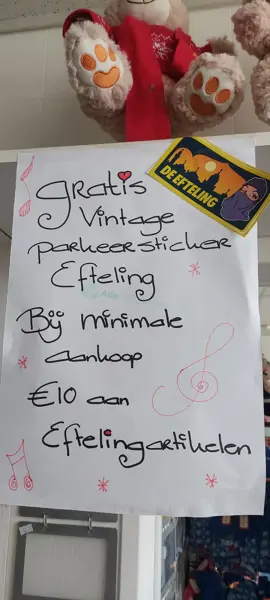 DE EFTELING
Gratis
Vintage
parkeersticker
Efteling
Bij minimale
aankoop
€10 aan
Eftelingartikelen